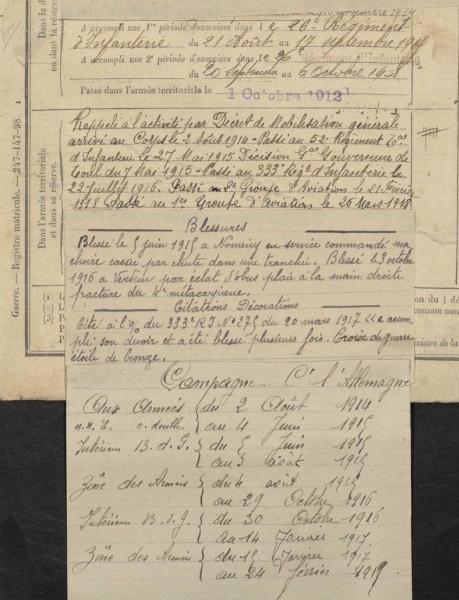 A accompli une 1re période d'exercices dans l e 26e Régiment
d'Infanterie du 21 Août au 17 septembre 190
A accompli une 2e période d'exercices dans le 26 Régiment d'Infanterie
du 20 Septembre au 6 Octobre 190
Passé dans l'armée territoriale le 1 Octobre 1912
Rappelé à l'activité par Décret de Mobilisation générale
arrivé au Corps le 2 Août 1914 - Passé au 52e Régiment
d'Infanterie le 27 Mai 1915 Décision Gal Gouverneur de
Toul du 7 Mai 1915 - Passé au 333e Régt d'Infanterie le
22 juillet 1916. Passé au 2e Groupe d'Aviation le 21 Février
1918 Passé au 1er Groupe d'Aviation le 26 Mars 1918
Blessures
Blessé le 5 juin 1915 à Nomény en service commandé ma
choire cassée par chute dans une tranchée. Blessé le 3 octobre
1916 à Verdun par éclat d'obus plaie à la main droite
fracture du 4e métacarpien.
Citations Décorations
Cité à l'O/ du 333e R I No 275 du 20 mars 1917 "a accom
pli son devoir et a été blessé plusieurs fois. Croix de guerre
étoile de bronze.
Campagne C/ l'Allemagne
Aux Armées du 2 Août 1914
c. double au 4 Juin 1915
Intérieur B. d. G. du 5 Juin 1915
au 3 août 1915
Zône des Armées du 4 août 1915
au 29 Octobre 1916
Intérieur B. d. g. du 30 Octobre 1916
au 14 Janvier 1917
Zône des Armées du 15 Janvier 1917
au 24 février 1919
Guerre. — Registre matricule. — 247-147-98.
Dans l'armée territoriale
et dans sa réserve.